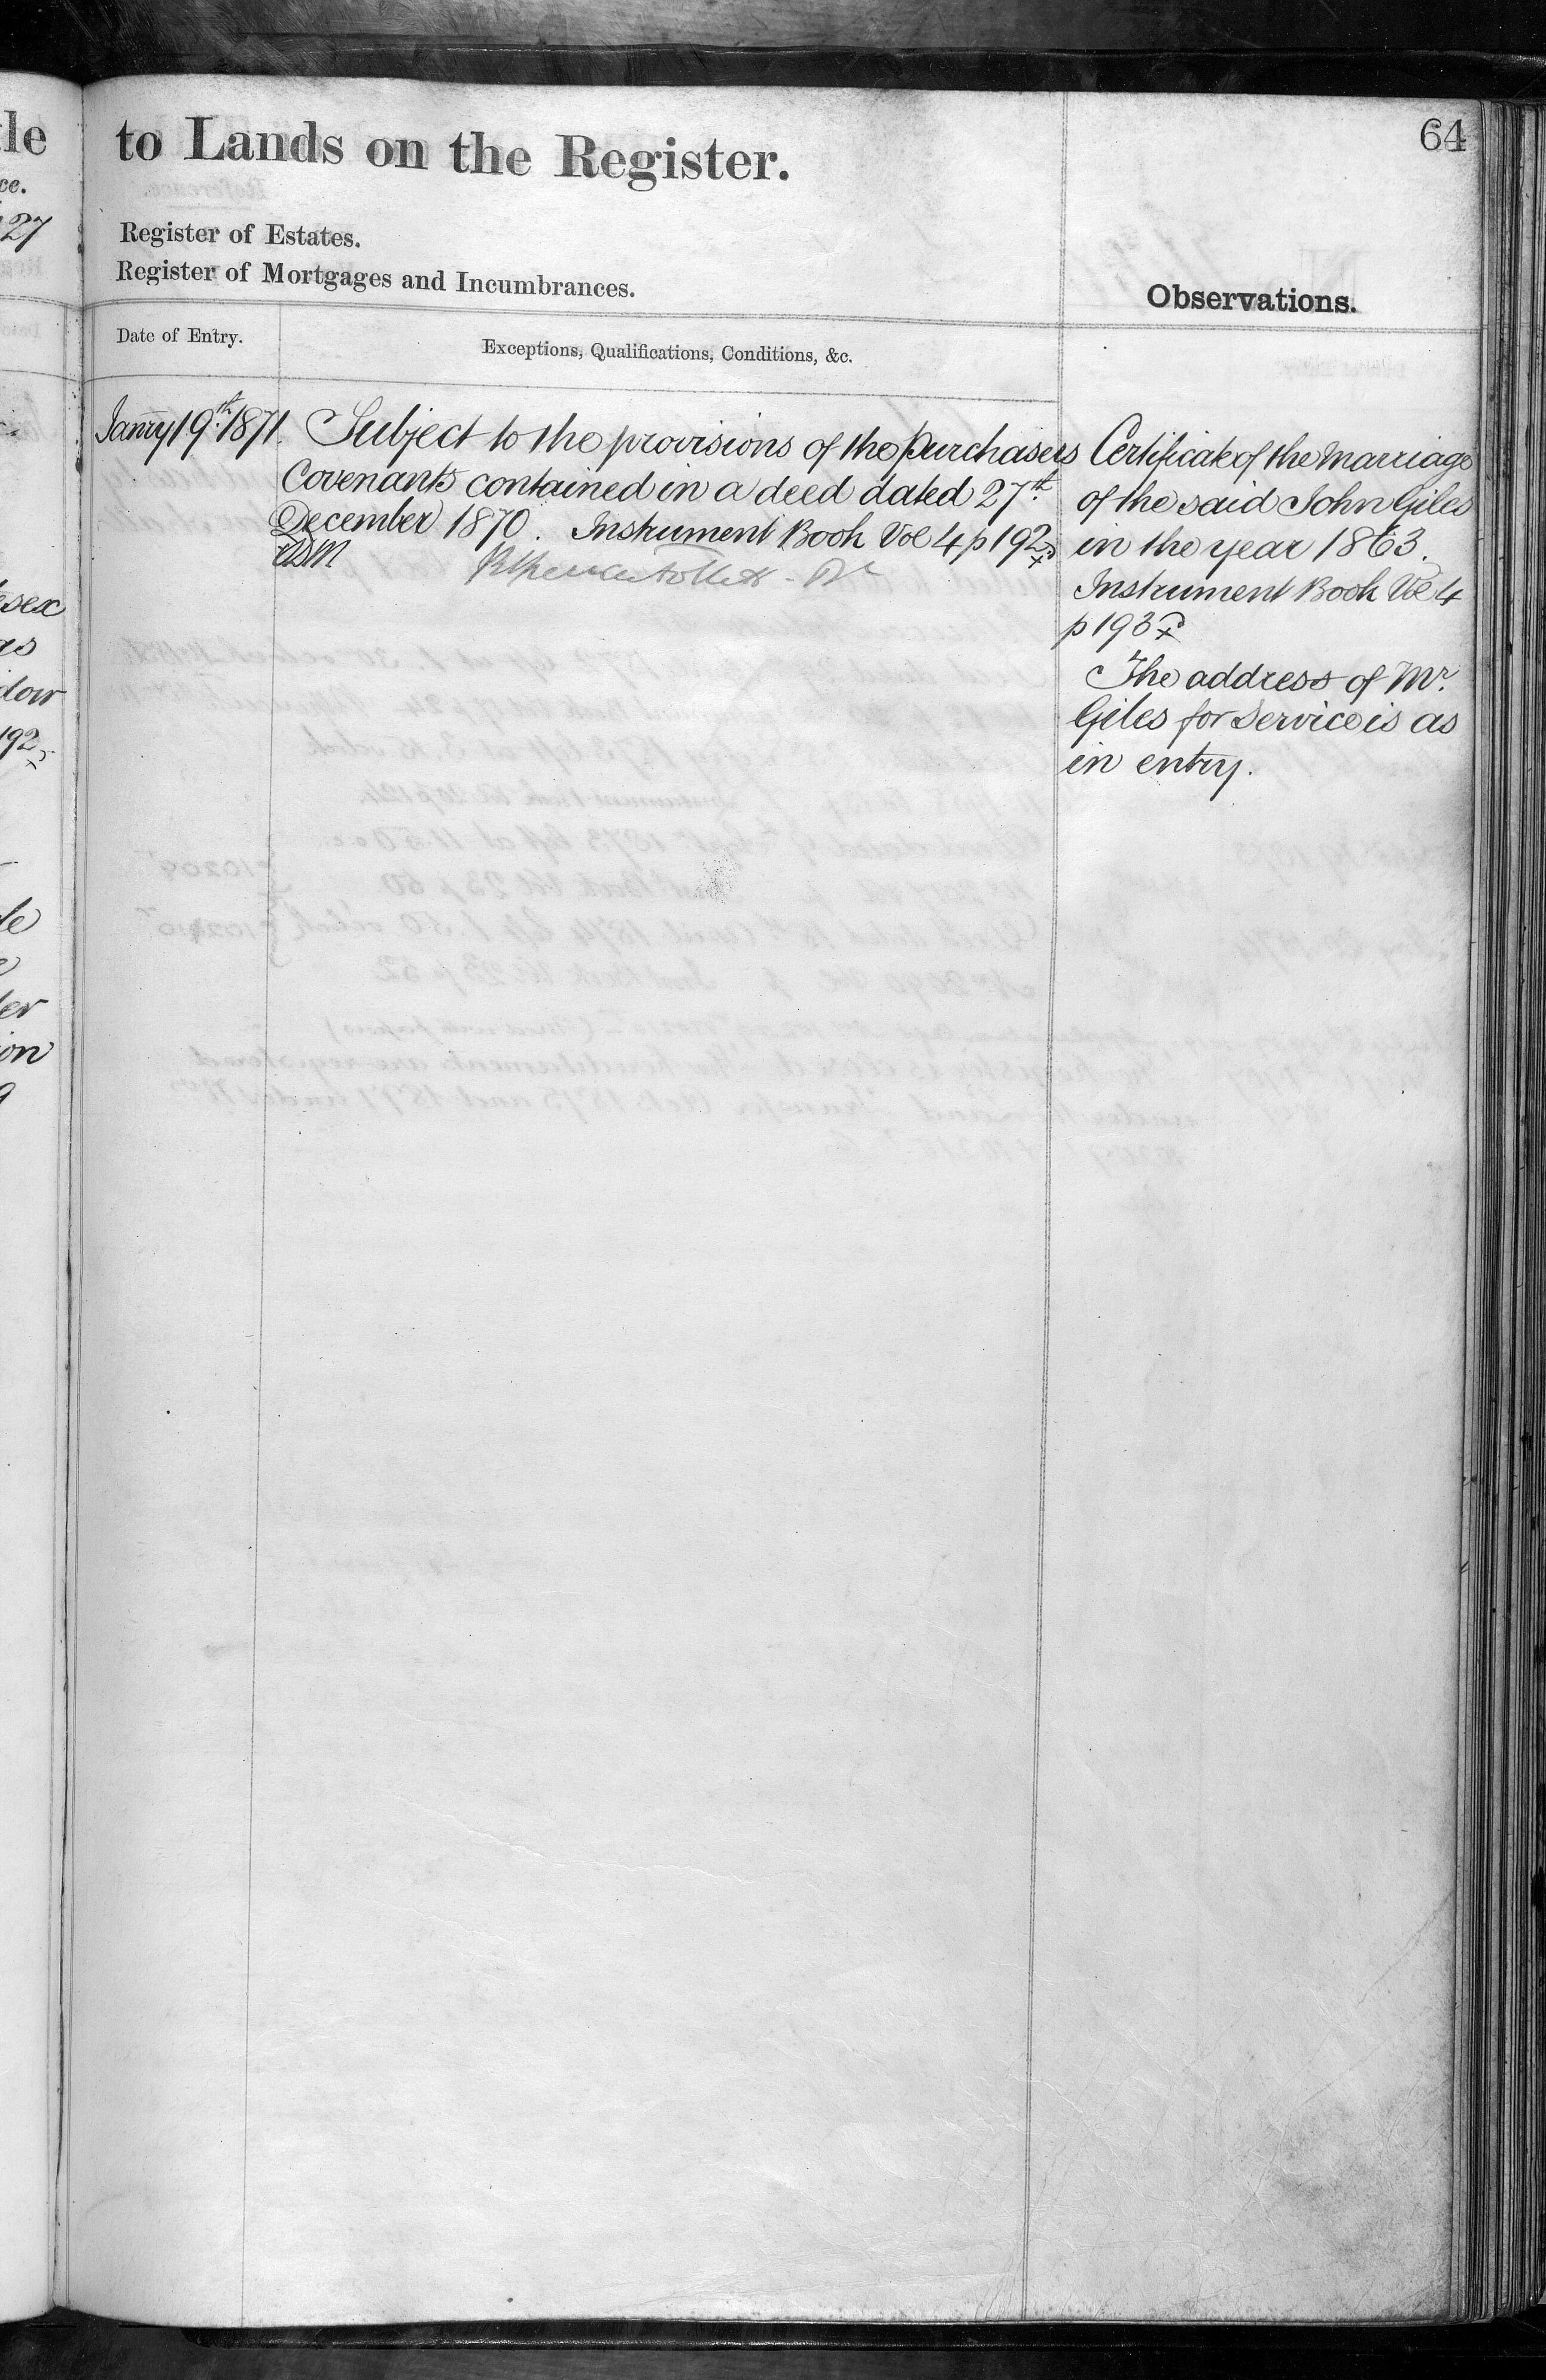 to Lands on the Register.
64
Register of Estates.
Register of Mortgages and Incumbrances.
Observations.
Date of Entry.
Exceptions, Qualifications, Conditions, &c.
Janry 19th. 1871.
Subject to the provisions of the purchasers
Covenants contained in a deed dated 27th.
December 1870. Instrument Book Vol 4 p 192
Certificate of the Marriage
of the said John Giles
in the year 1863.
Instrument Book Vol 4
p 193
The address of Mr.
Giles for Service is as
in entry.
tle
ce.
27
sex
as
dow
192
le
er
ion